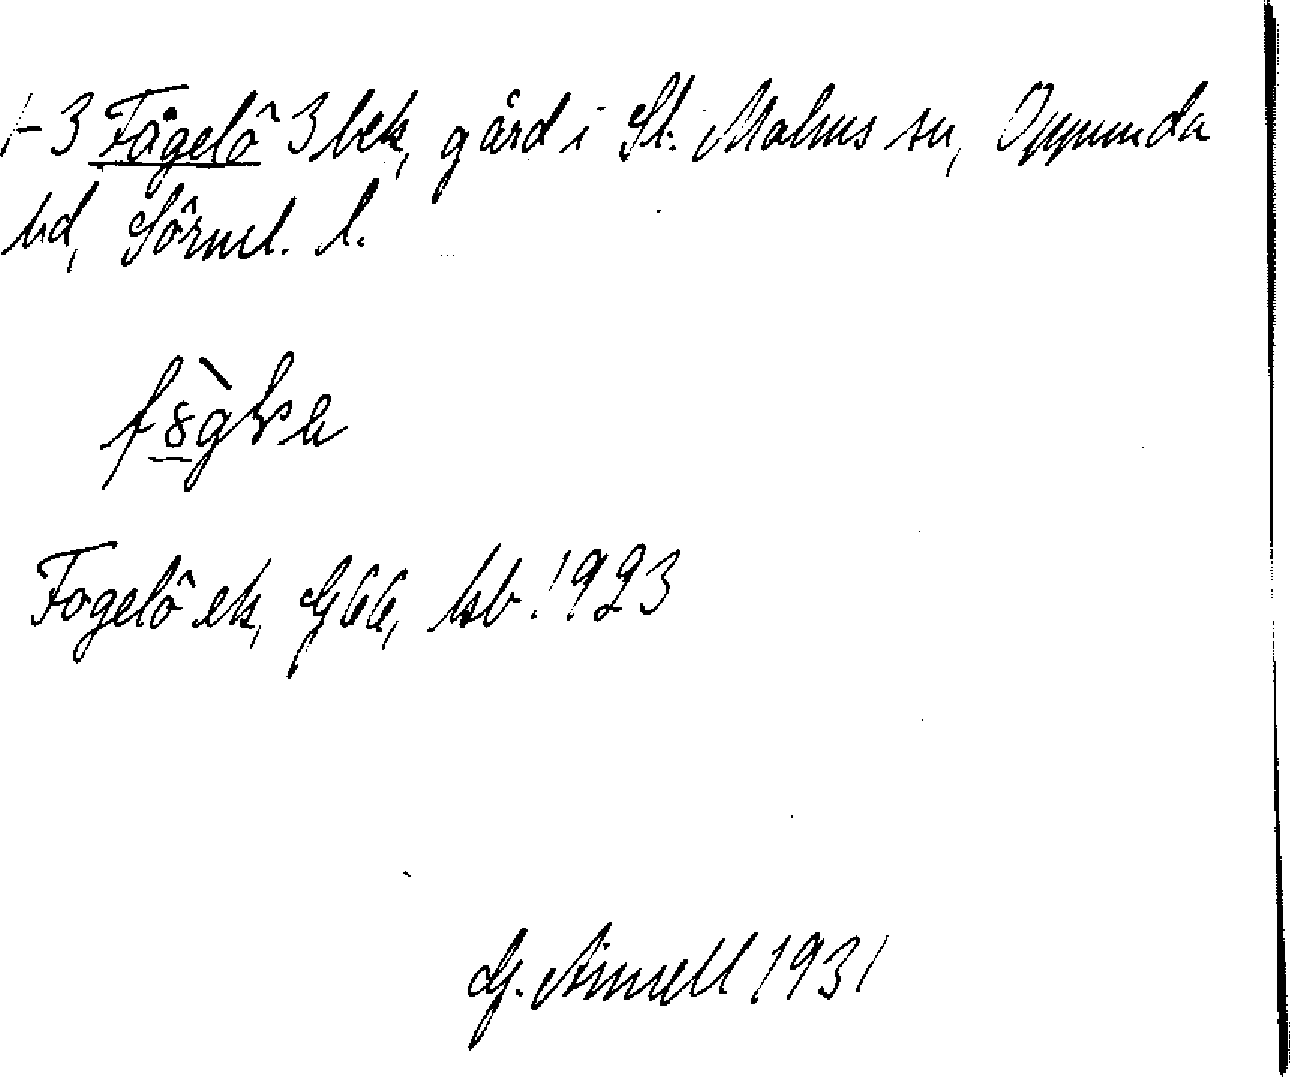 +3 Fågelö 3 bek, gård i St. Malms sn, Oppunda
hd, Sörml. l.
Fogelö ek, GEK, ksb. 1923
G. Ainell 1931